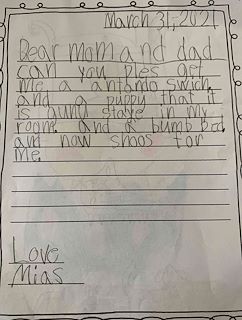 March 31, 2021
Dear mom and dad
can you ples get
me a antomo swich
and a puppy that it
is young staye in my
room. and a bumb bed
and now shoos for
me.
Love
Mias